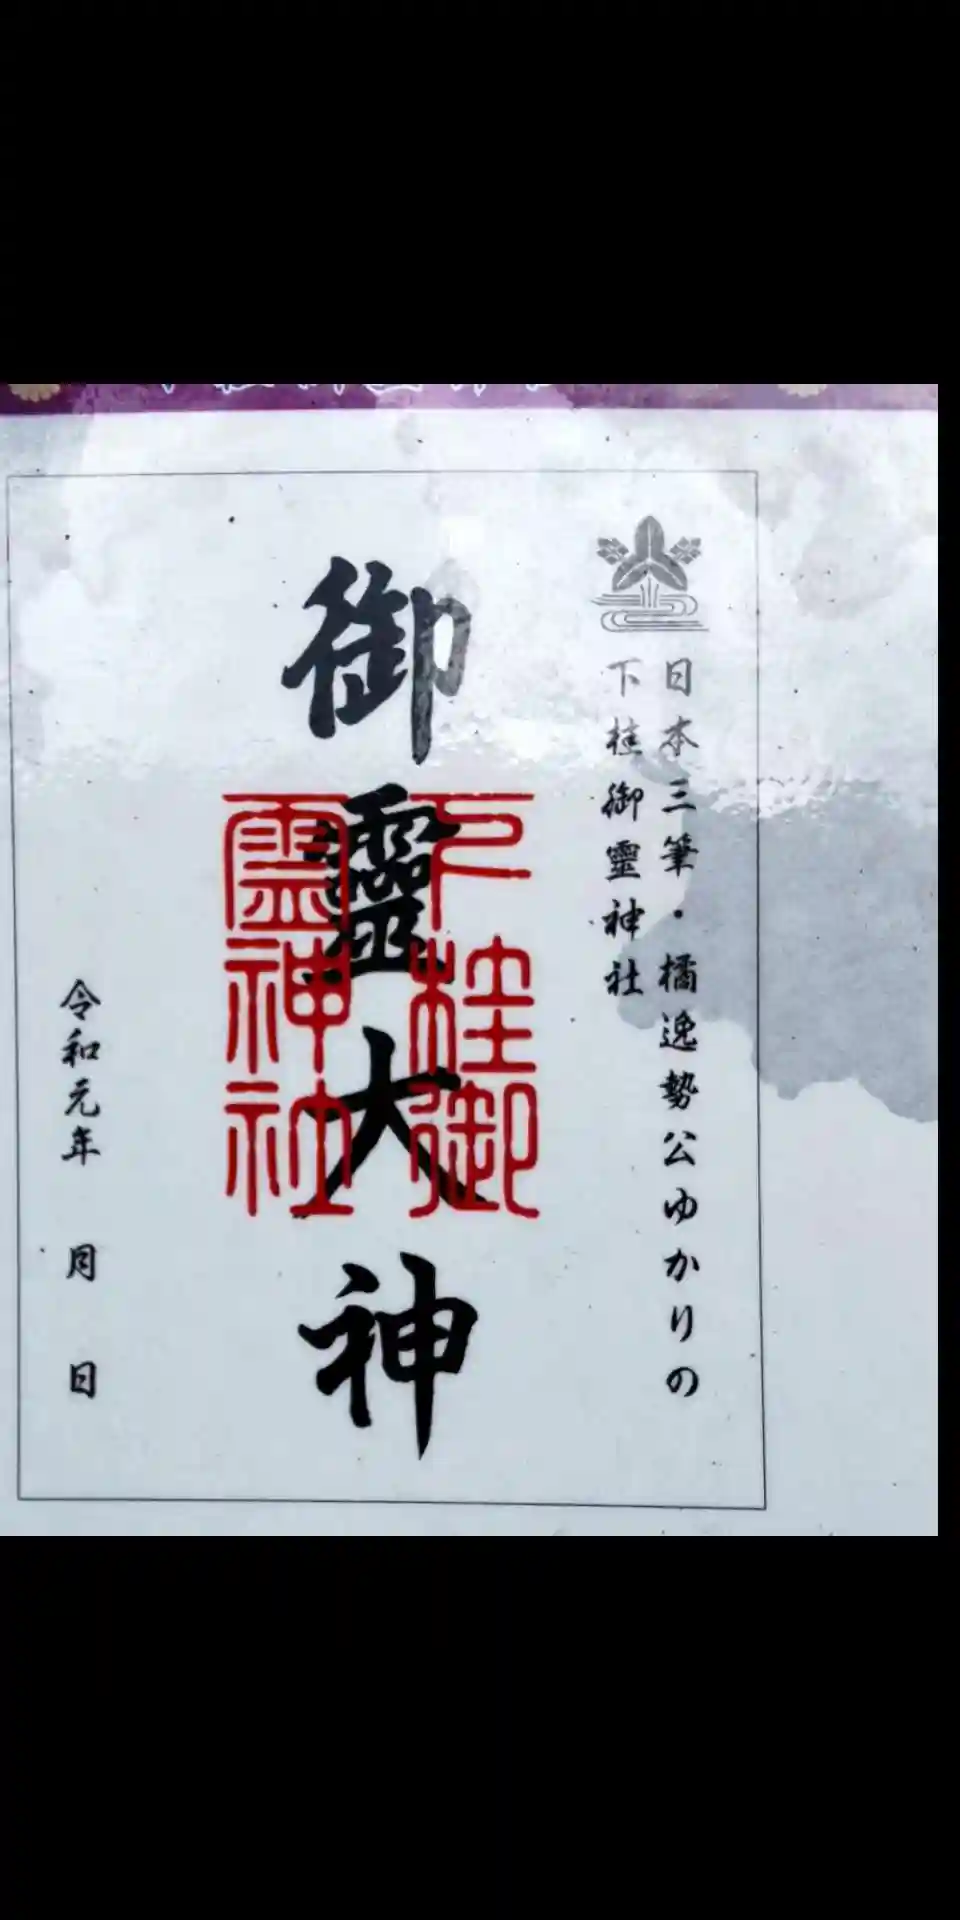 日本三筆・橘逸勢公ゆかりの
下桂御霊神社
御靈大神
下桂御
霊神社
令和元年 月 日